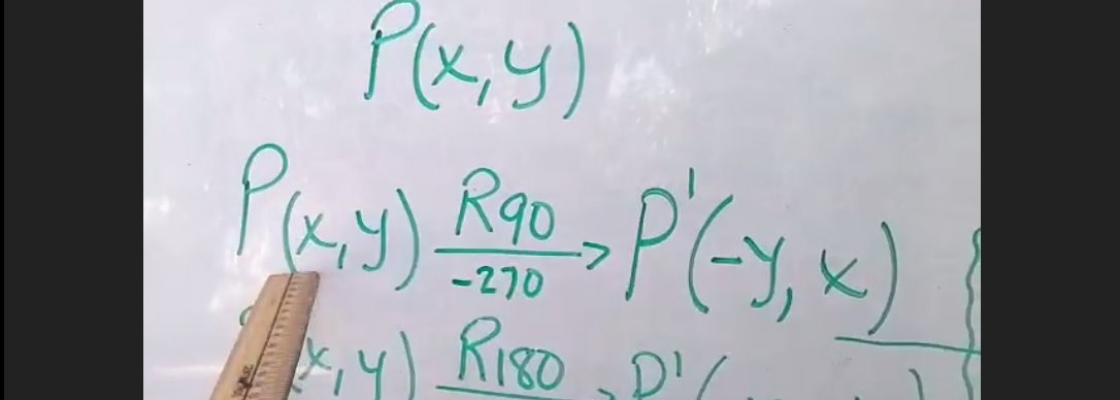 P(x,y)
P(x,y) R90 -270 > P'(-y, x)
x,y) R180 P'(